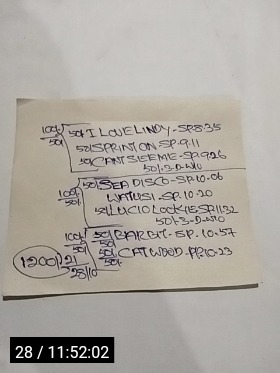 100/50 50/ I LOVE LINDY - SP.8.35
50/ SPRINT ON SP.9.11
50/ CANT SEE ME - SP.9.26
50/-3-D-W10
100/50 50/ SEA DISCO - SP.10-06
WATUSI - SP.10-20
50/ LUCIO LOCK
50/-3-D-W10
100/50 50/ SP.10.57
50/ CATWOOD - PP.10-23
1200/ 21
28/10
28 / 11:52:02